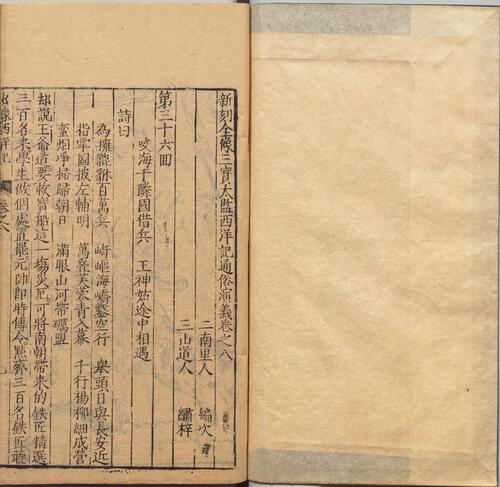 新刻全像三寶太監西洋記通俗演義卷之八
二南里人 編次
三山道人 繡梓
第三十六回
咬海干隣國借兵 王神姑途中相遇
詩曰
為擁貔貅百萬兵 崎嶇海嶠鑿空行 舉頭日與長安近
指掌圖披左輔明 萬疊芙蓉青入幕 千行楊柳細成營
蠻烟凈掃歸朝日 滿眼山河帶礪盟
却說王爺道要救寶船這一塲災厄可將南朝帶來的鉄匠精選
三百名來學生做個處置罷元帥卽時傳令㸃齊三百名鉄匠聽
西洋記 卷之八